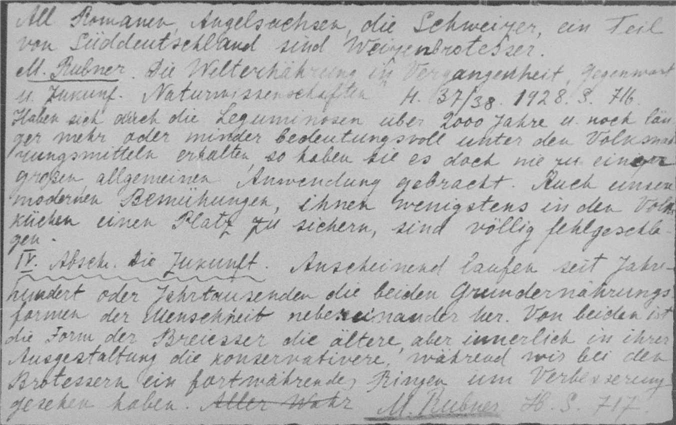 All Romanen, Angelsachsen, die Schweizer, ein Teil
von Süddeutschland sind Weizenbrotesser.
M. Rubner. Die Welternährung in Vergangenheit, Gegenwart
u. Zukunf. Naturwissenschaften H. 37/38. 1928. S. 716.
Haben sich auch die Leguminosen über 2000 Jahre u. noch län-
ger mehr oder minder bedeutungsvoll unter den Volksnah
rungsmitteln erhalten, so haben sie es doch nie zu einer
großen allgemeinen Anwendung gebracht. Auch unsere
modernen Bemühungen, ihnen wenigstens in den Volks
küchen einen Platz zu sichern, sind völlig fehlgeschla-
gen.
IV. Absch. Die Zukunft. Anscheinend laufen seit Jahr-
hundert oder Jahrtausenden die beiden Grundernährungs
formen der Menschheit nebeneinander her. Von beiden ist
die Form der Breiesser die ältere, aber innerlich in ihrer
Ausgestaltung die konservativere, während wir bei den
Brotessern ein fortwährendes Ringen um Verbesserung
gesehen haben. Aller Wahr M. Rubner H. S. 717.